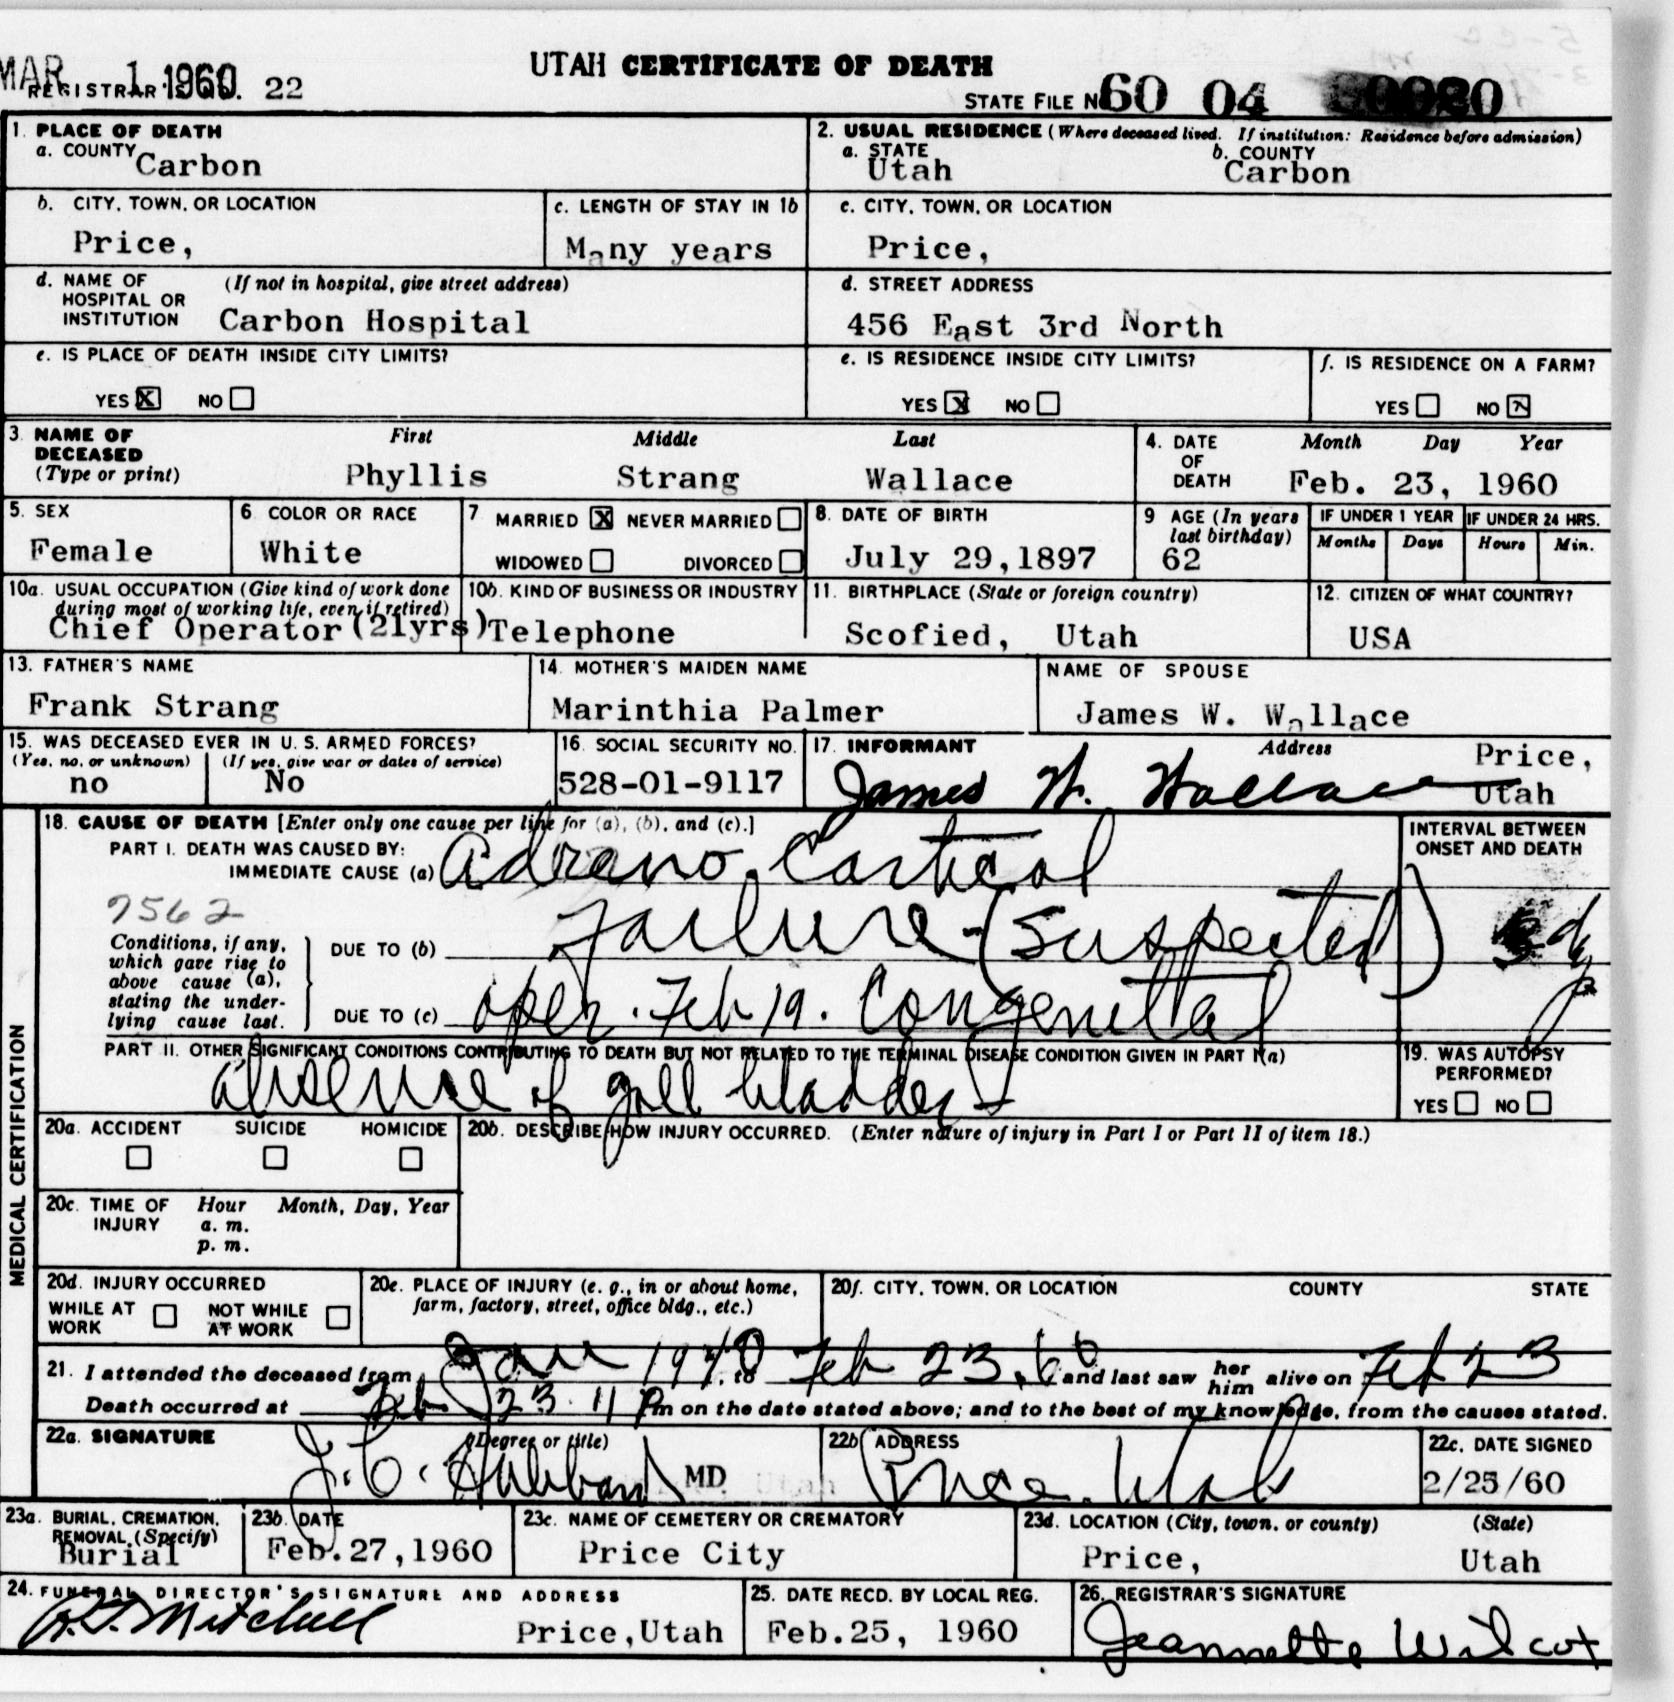 MAR 1 1960
REGISTRAR 22
UTAH CERTIFICATE OF DEATH
STATE FILE NO. 60 04
1. PLACE OF DEATH
a. COUNTY Carbon
2. USUAL RESIDENCE (Where deceased lived. If institution: Residence before admission)
a. STATE Utah b. COUNTY Carbon
b. CITY, TOWN, OR LOCATION Price,
c. LENGTH OF STAY IN 1b Many years
c. CITY, TOWN, OR LOCATION Price,
d. NAME OF HOSPITAL OR INSTITUTION (If not in hospital, give street address) Carbon Hospital
d. STREET ADDRESS 456 East 3rd North
e. IS PLACE OF DEATH INSIDE CITY LIMITS?
YES X NO
e. IS RESIDENCE INSIDE CITY LIMITS?
YES X NO
f. IS RESIDENCE ON A FARM?
YES NO X
3. NAME OF DECEASED (Type or print) First Middle Last
Phyllis Strang Wallace
4. DATE OF DEATH Month Day Year
Feb. 23, 1960
5. SEX Female
6. COLOR OR RACE White
7 MARRIED X NEVER MARRIED
WIDOWED DIVORCED
8. DATE OF BIRTH July 29,1897
9 AGE (In years last birthday) 62
IF UNDER 1 YEAR Months Days
IF UNDER 24 HRS. Hours Min.
10a. USUAL OCCUPATION (Give kind of work done during most of working life, even if retired)
Chief Operator (21yrs)
10b. KIND OF BUSINESS OR INDUSTRY Telephone
11. BIRTHPLACE (State or foreign country) Scofied, Utah
12. CITIZEN OF WHAT COUNTRY? USA
13. FATHER'S NAME Frank Strang
14. MOTHER'S MAIDEN NAME Marinthia Palmer
NAME OF SPOUSE James W. Wallace
15. WAS DECEASED EVER IN U. S. ARMED FORCES?
(Yes, no, or unknown) no (If yes, give war or dates of service) No
16. SOCIAL SECURITY NO. 528-01-9117
17. INFORMANT James W. Wallace Address Price, Utah
MEDICAL CERTIFICATION
18. CAUSE OF DEATH [Enter only one cause per line for (a), (b), and (c).]
PART I. DEATH WAS CAUSED BY:
IMMEDIATE CAUSE (a) Adreno. Cortical
7562
Conditions, if any, which gave rise to above cause (a), stating the underlying cause last.
DUE TO (b) Failure - (Suspected)
DUE TO (c) oper. Feb 19. Congenital
INTERVAL BETWEEN ONSET AND DEATH
PART II. OTHER SIGNIFICANT CONDITIONS CONTRIBUTING TO DEATH BUT NOT RELATED TO THE TERMINAL DISEASE CONDITION GIVEN IN PART I(a)
absence of gall bladder
19. WAS AUTOPSY PERFORMED?
YES NO
20a. ACCIDENT SUICIDE HOMICIDE
20b. DESCRIBE HOW INJURY OCCURRED. (Enter nature of injury in Part I or Part II of item 18.)
20c. TIME OF INJURY Hour Month, Day, Year
a. m.
p. m.
20d. INJURY OCCURRED
WHILE AT WORK NOT WHILE AT WORK
20e. PLACE OF INJURY (e. g., in or about home, farm, factory, street, office bldg., etc.)
20f. CITY, TOWN, OR LOCATION COUNTY STATE
21. I attended the deceased from Jan 1940, to Feb 23, 60 and last saw her him alive on Feb 23
Death occurred at Feb 23 11 P m on the date stated above; and to the best of my knowledge, from the causes stated.
22a. SIGNATURE (Degree or title) J. C. Hubbard MD
22b ADDRESS Price, Utah
22c. DATE SIGNED 2/25/60
23a. BURIAL, CREMATION, REMOVAL (Specify) Burial
23b. DATE Feb.27,1960
23c. NAME OF CEMETERY OR CREMATORY Price City
23d. LOCATION (City, town, or county) (State)
Price, Utah
24. FUNERAL DIRECTOR'S SIGNATURE AND ADDRESS
Mitchell Price,Utah
25. DATE RECD. BY LOCAL REG. Feb.25, 1960
26. REGISTRAR'S SIGNATURE Jeannette Wilcox